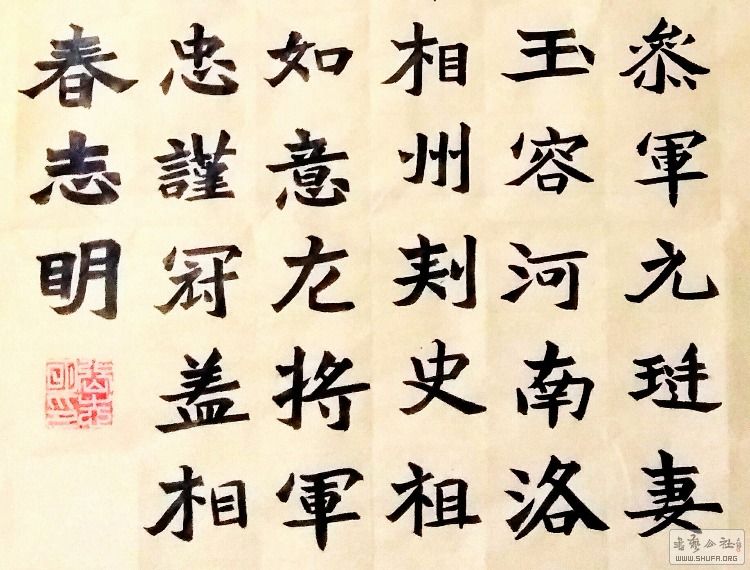 叅軍元珽妻
玉容河南洛
相州刾史祖
如意左將軍
忠謹冠盖相
春志明
書藝公社
WWW.SHUFA.ORG